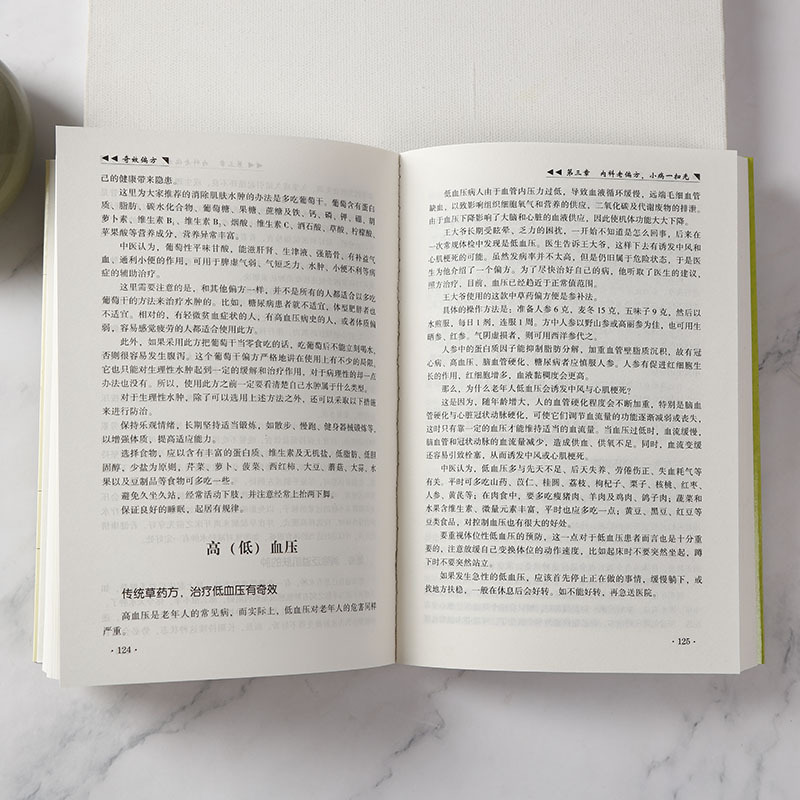 奇效偏方
己的健康带来隐患。
这里为大家推荐的消除肌肤水肿的办法是多吃葡萄。葡萄含有蛋白
质、脂肪、碳水化合物、葡萄糖、果糖、蔗糖及铁、钙、磷、钾、硼、胡
萝卜素、维生素B₁、维生素B₂、烟酸、维生素C、酒石酸、草酸、柠檬酸、
苹果酸等营养成分，营养异常丰富。
中医认为，葡萄性平味甘酸，能滋肝肾、生津液、强筋骨，有补益气
血、通利小便的作用，可用于脾虚气弱、气短乏力、水肿、小便不利等病
症的辅助治疗。
这里需要注意的是，和其他偏方一样，并不是所有的人都适合以多吃
葡萄干的方法来治疗水肿的。比如，糖尿病患者就不适宜，体型肥胖者也
不适宜。相对的，有轻微贫血症状的人，有高血压病史的人，或者体质偏
弱，容易感觉疲劳的人都适合使用此方。
此外，如果采用此方把葡萄干当零食吃的话，吃葡萄后不能立刻喝水，
否则很容易发生腹泻。这个葡萄干偏方严格地讲在使用上有不少的局限，
它也只能对生理性水肿起到一定的缓解和治疗作用，对于病理性的却一点
办法也没有。所以，使用此方之前一定要看清楚自己水肿属于什么类型。
对于生理性水肿，除了可以选用上述方法之外，还可以采取以下措施
来进行防治。
保持乐观情绪，长期坚持适当锻炼，如散步、慢跑、健身器械锻炼等，
以增强体质，提高适应能力。
选择食物，应以含有丰富的蛋白质、维生素及无机盐，低脂肪、低胆
固醇，少盐为原则，芹菜、萝卜、菠菜、西红柿、大豆、蘑菇、大蒜、水
果以及豆制品等食物可多吃一些。
避免久坐久站，经常活动下肢，并注意经常上抬两下脚。
保证良好的睡眠，起居有规律。
高（低）血压
传统草药方，治疗低血压有奇效
高血压是老年人的常见病，而实际上，低血压对老年人的危害同样
严重。
·124·
第三章 内科老偏方，小病一扫光
低血压病人由于血管内压力过低，导致血液循环缓慢，远端毛细血管
缺血，以致影响组织细胞氧气和营养的供应，二氧化碳及代谢废物的排泄。
由于血压下降影响了大脑和心脏的血液供应，因此使机体功能大大下降。
王大爷长期受眩晕、乏力的困扰，一开始不知道是怎么回事，后来在
一次常规体检中发现是低血压。医生告诉王大爷，这样下去有诱发中风和
心肌梗死的可能性。虽然发病率并不太高，但是仍旧属于危险状态，于是医
生为他介绍了一个偏方。为了尽快治好自己的病，他听取了医生的建议，
照方治疗，目前，血压已经趋近于正常值范围。
王大爷使用的这款中草药偏方便是参补法。
具体的操作方法是：准备人参6克，麦冬15克，五味子9克，然后以
水煎服，每日1剂，连服1周。方中人参以野山参或高丽参为佳，也可用生
晒参、红参。气阴虚损者，则可用西洋参代之。
人参中的蛋白质因子能抑制脂肪分解，加重血管壁脂质沉积，故有冠
心病、高血压、脑血管硬化、糖尿病者应慎服人参。人参有促进红细胞生
长的作用，红细胞增多，血液黏稠度会更高。
那么，为什么老年人低血压会诱发中风与心肌梗死？
这是因为，随年龄增大，人的血管硬化程度会不断加重，特别是脑血
管硬化与心脏冠状动脉硬化，可使它们调节血流量的功能逐渐减弱或丧失，
这时只有靠一定的血压才能维持适当的血流量。当血压过低时，血流缓慢，
脑血管和冠状动脉的血流量减少，造成供血、供氧不足。同时，血流变缓
还容易引致栓塞，从而诱发中风或心肌梗死。
中医认为，低血压多与先天不足、后天失养、劳倦伤正、失血耗气等
有关。平时可多吃山药、苡仁、桂圆、荔枝、枸杞子、栗子、核桃、红枣、
人参、黄芪等；在肉食中，要多吃瘦猪肉、羊肉及鸡肉、鸽子肉；蔬菜和
水果含维生素、微量元素丰富，平时也应多吃一点；黄豆、黑豆、红豆等
豆类食品，对控制血压也有很大的好处。
要重视体位性低血压的预防，这一点对于低血压患者而言也是十分重
要的，注意放缓自己变换体位的动作速度，比如起床时不要突然坐起，蹲
下时不要突然站立。
如果发生急性的低血压，应该首先停止正在做的事情，缓慢躺下，或
找地方扶稳，一般在休息后会好转。如不能好转，再急送医院。
·125·